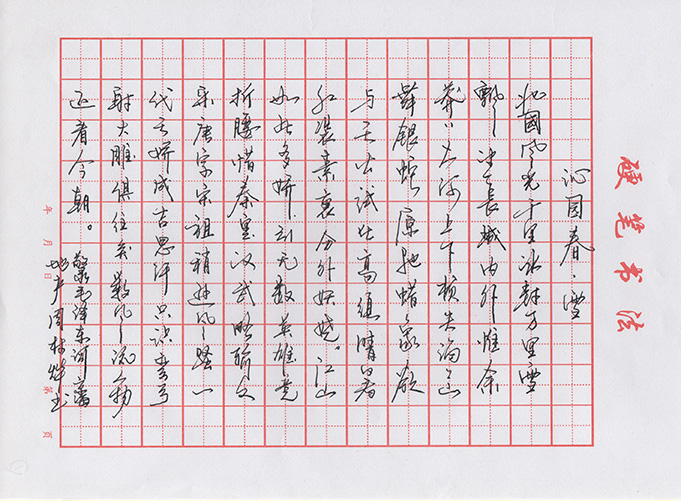 硬笔书法
沁园春·雪
北國风光千里冰封万里雪
飘望长城内外惟余
莽〻大河上下顿失滔〻山
舞银蛇原驰蜡象欲
与天公试比高须晴日看
红装素裹分外妖娆。江山
如此多娇引无数英雄竞
折腰惜秦皇汉武略输文
采唐宗宋祖稍逊风骚一
代天骄成吉思汗只识弯弓
射大雕俱往矣数风流人物
还看今朝。
毛泽东词
周林书
年 月 日 第 页